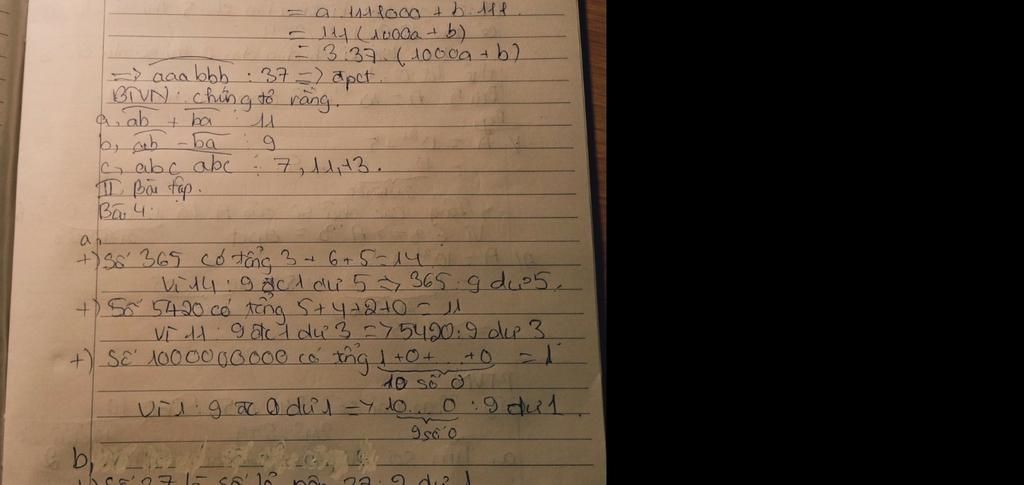 = a.111000 + b.111
= 111(1000a + b)
= 3.37.(1000a + b)
=> aaabbb : 37 => đpct.
BTVN: chứng tỏ rằng.
a, ab + ba : 11
b, ab - ba : 9
c, abc abc : 7, 11, 13.
II. Bài tập.
Bài 4:
a,
+) Số 365 có tổng 3 + 6 + 5 = 14
Vì 14 : 9 đc 1 dư 5 => 365 : 9 dư 5.
+) Số 5420 có tổng 5 + 4 + 2 + 0 = 11
Vì 11 : 9 đc 1 dư 3 => 5420 : 9 dư 3
+) Số 1000000000 có tổng 1 + 0 + ... + 0 = 1
10 số 0
Vì 1 : 9 đc 0 dư 1 => 10...0 : 9 dư 1.
9 số 0
b,
+) Số 27 là số lẻ nên 27 : 2 dư 1